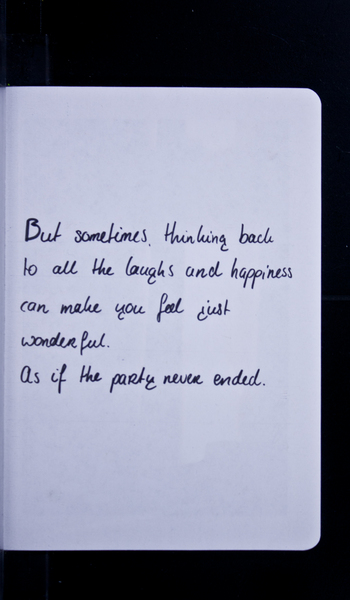 But sometimes, thinking back
to all the laughs and happiness
can make you feel just
wonderful.
As if the party never ended.